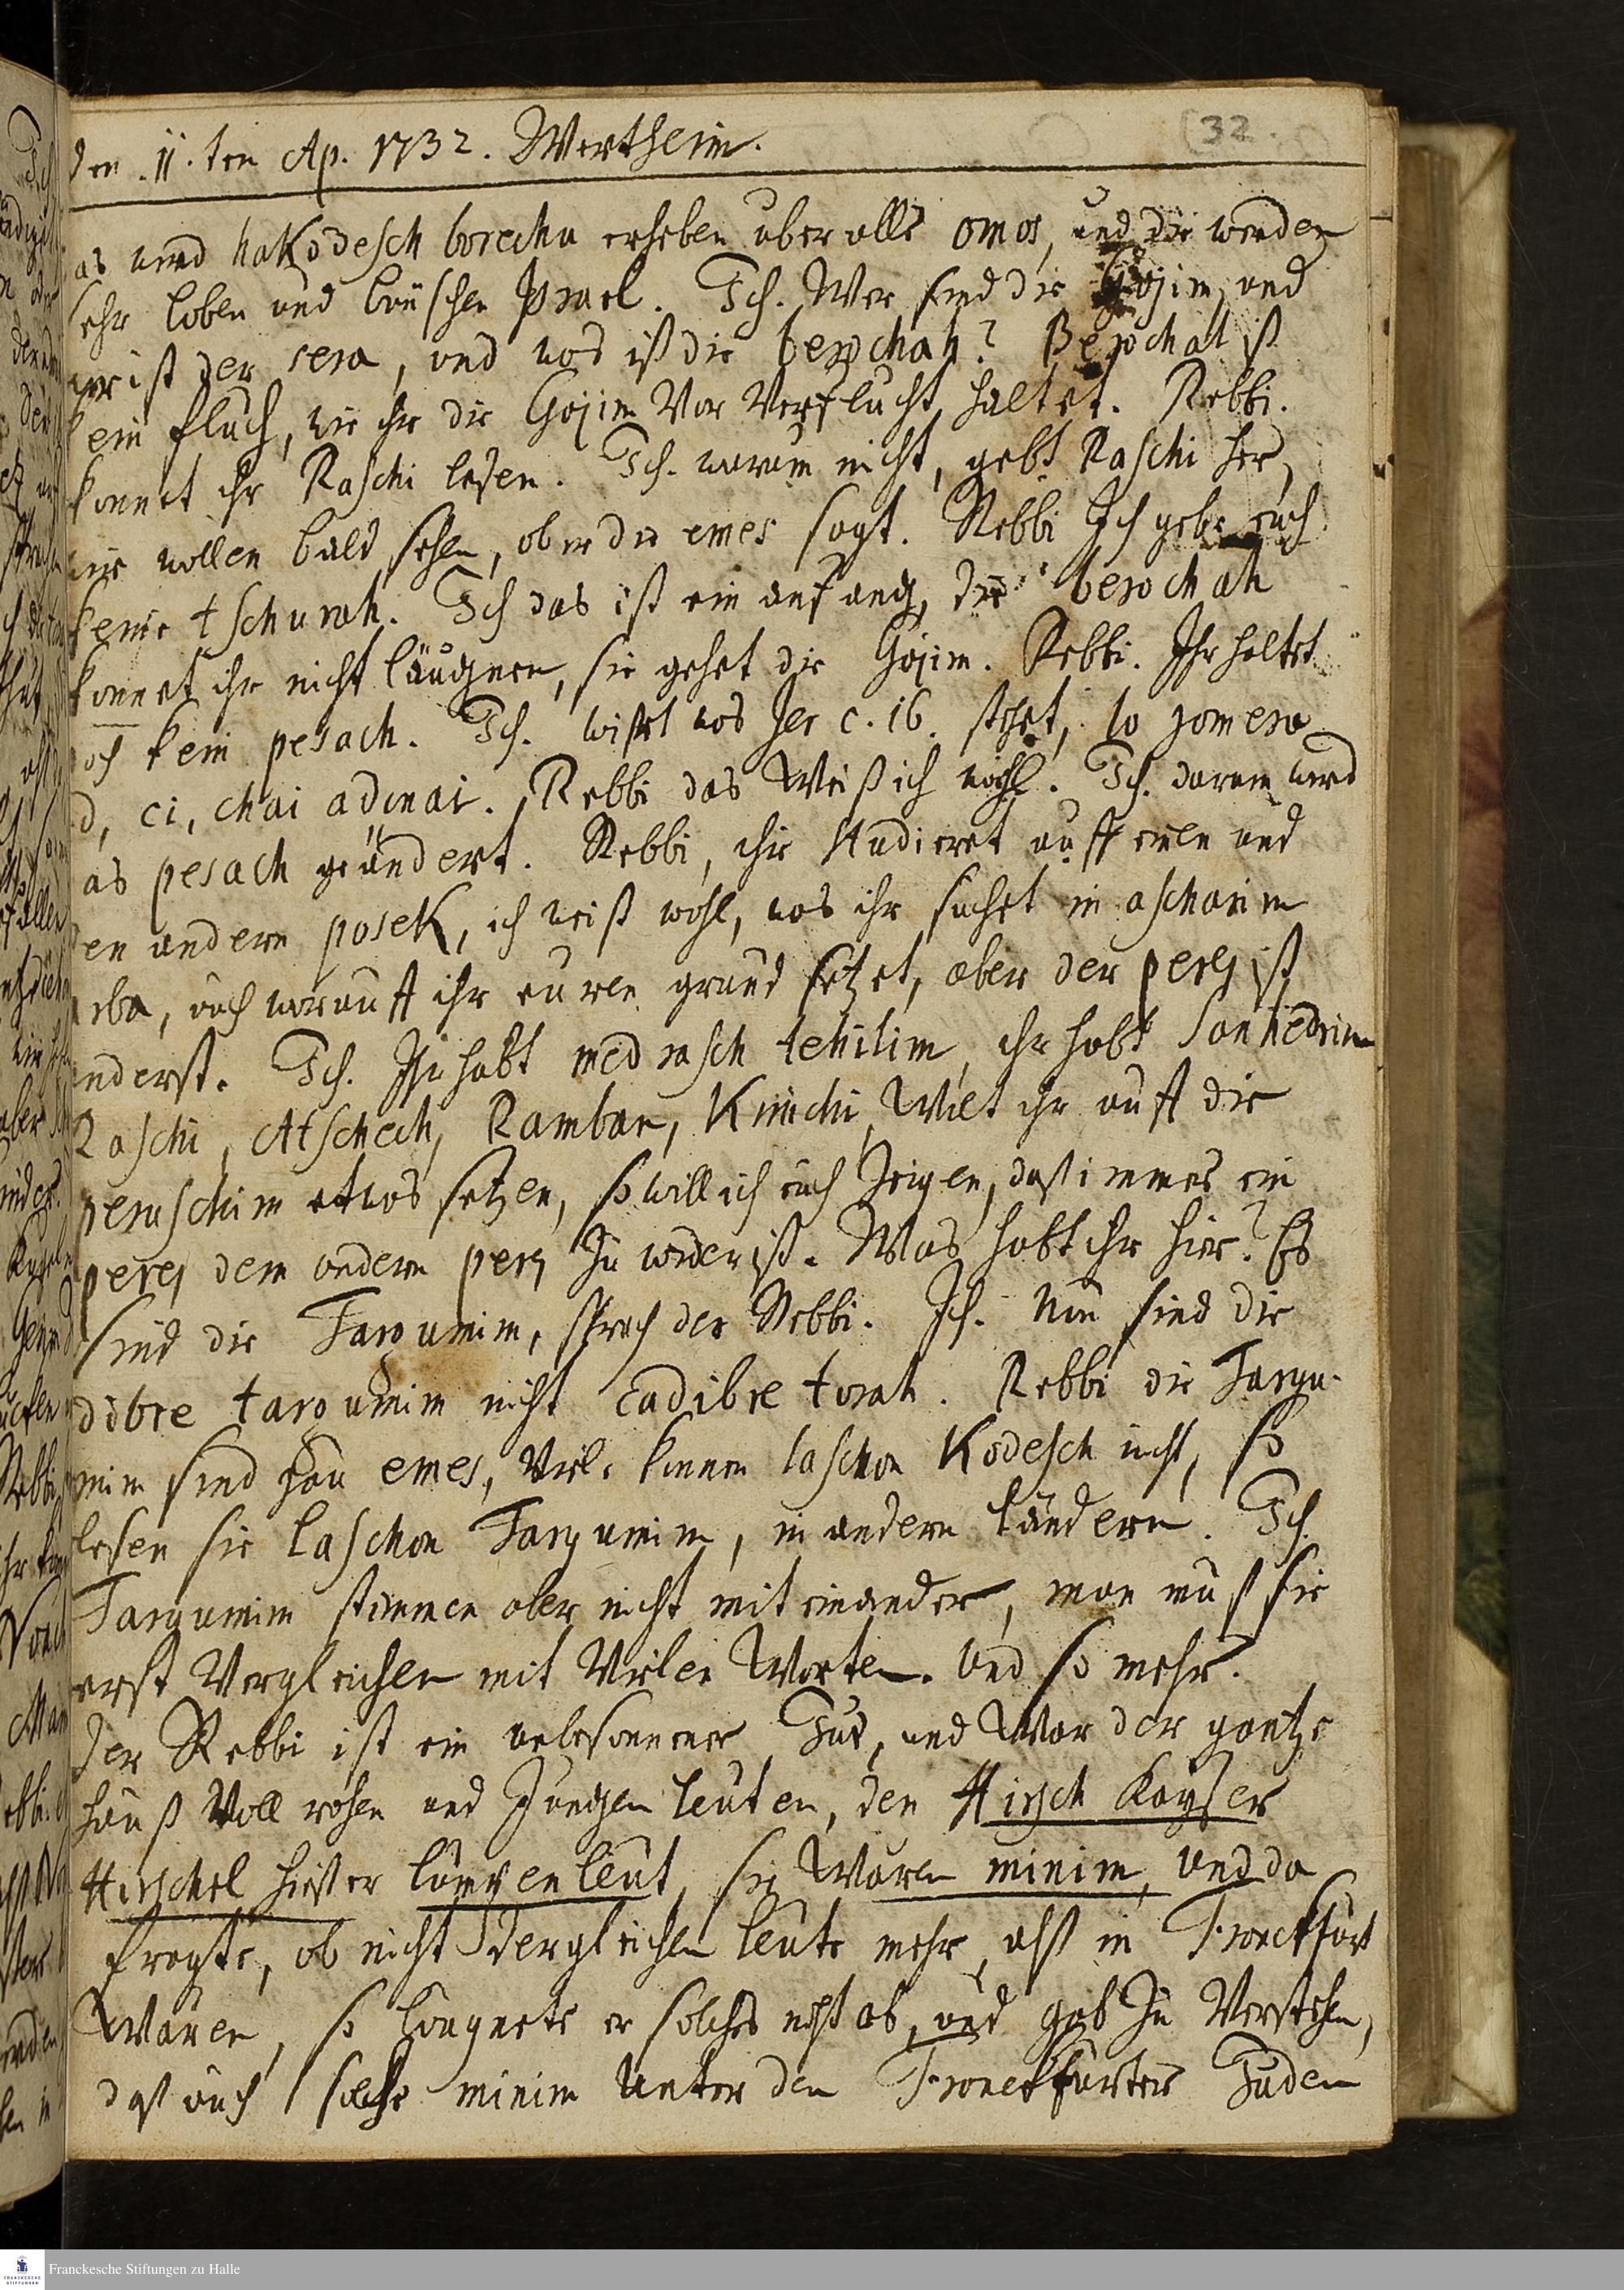 den 11.ten Ap. 1732. Wertheim.
32.
as wird hakodesch borechu erheben uber alle omos, und die werden
sehr loben und Israel. Ich. Wer sind die Gojim, und
wer ist der sera, und was ist die berochah? Berochah ist
kein fluch, wie ihr die Gojim vor verflucht haltet. Rebbi.
konnet ihr Raschi lesen. Ich. warum nicht, gebt Raschi her,
wir wollen bald sehen, ob er die emes sagt. Rebbi Ich gebe euch
keine tschurah. Ich das ist ein anfang, die berochah
konnet ihr nicht läugnen, sie gehet die Gojim. Rebbi. Ihr haltet
doch kein pesach. Ich. wist was Jer c. 16. stehet, lo jomera
d, ci, chai adonai. Rebbi das Weiß ich wohl. Ich. darum wird
as pesach geändert. Rebbi, ihr studieret auff einen und
den andern posek, ich weiß wohl, was ihr suchet in aschorim
arba, auch worauff ihr euren grund setzet, aber der perej ist
anderst. Ich. Ihr habt medrasch tehilim, ihr habt Sanhedrim
Raschi, Alschech, Ramban, Kimchi, Wolt ihr auff die
peruschim etwas setzen, so will ich euch zeigen, daß immer ein
perej dem andern perej zu wider ist. Was habt ihr hier? Es
sind die Targumim, sprach der Rebbi. Ich. Nun sind die
dibre targumim nicht cadibre torah. Rebbi die Targu-
mim sind hau emes, viele konnen laschon Kodesch nicht, so
lesen sie laschon Targumim, in andern ländern. Ich.
Targumim stimmen aber nicht mit einander, man muß sie
erst Vergleichen mit vielen Worten. Und so mehr.
Der Rebbi ist ein unbesonnener Jud, und War der gantze
hauß voll rohen und Jungen leuten, den Hirsch Kayser
Hirschel hieß er lumpenleut, sie Waren minim, und da
fragte, ob nicht dergleichen leute mehr, alß in Franckfurt
Wären, so laugnete er solches nicht ab, und gab zu Verstehen,
daß auch solche minim Unter den Franckfurter Juden
Franckesche Stiftungen zu Halle